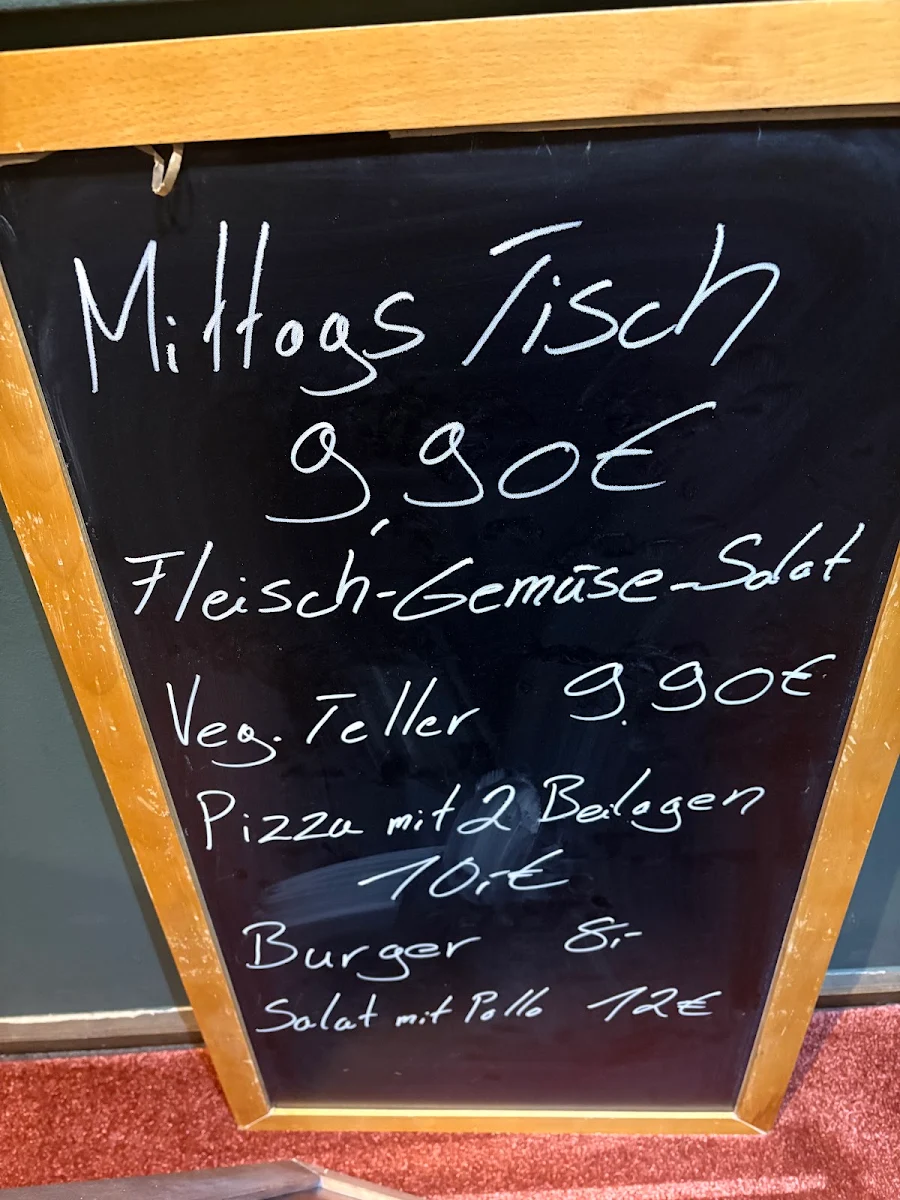 Mittags Tisch
9,90€
Fleisch-Gemüse-Salat
Veg. Teller 9.90€
Pizza mit 2 Beilagen
10,-€
Burger 8,-
Salat mit Pollo 12€